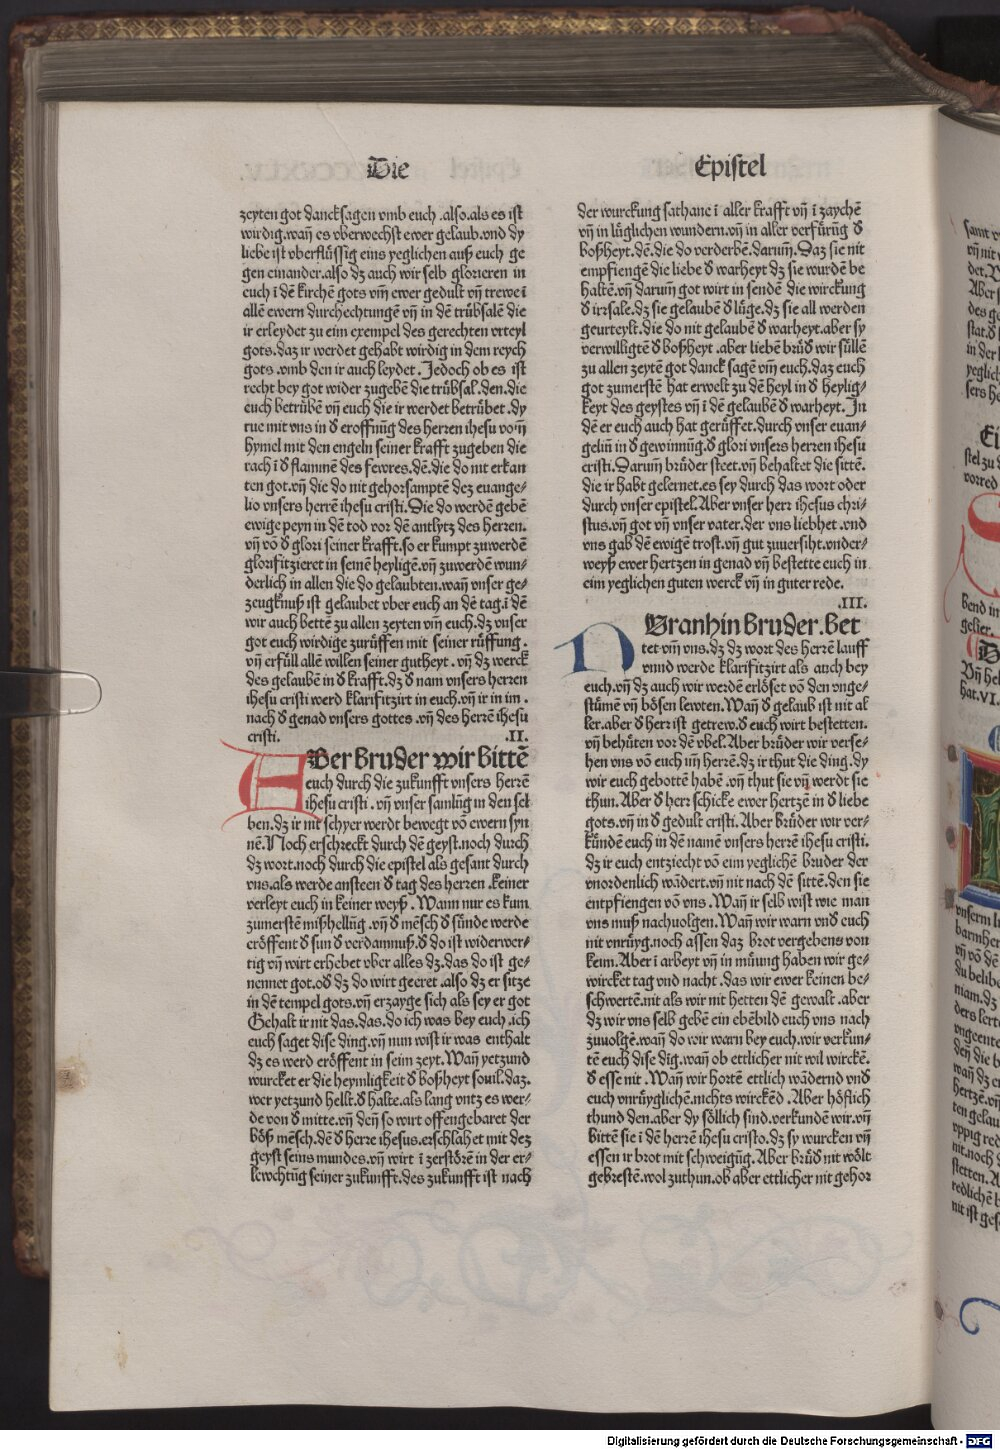 Die
Epistel
zeyten got dancksagen vmb euch .also.als es ist
wirdig.wañ es vberwechst ewer gelaub.vnd dy
liebe ist vberflüssig eins yeglichen auß euch ge
gen einander.also dz auch wir selb glorieren in
euch i dē kirchē gots vm̄ ewer gedult vn̄ trewe i
allē ewern durchechtungē vn̄ in dē trübsalē die
ir erleydet zu eim exempel des gerechten vrteyl
gots.daz ir werdet gehabt wirdig in dem reych
gots .vmb den ir auch leydet. Jedoch ob es ist
recht bey got wider zugebē die trübsal.den.die
euch betrübē vn̄ euch die ir werdet betrübet .dy
rue mit vns in d̕ eroffnūg des herren ihesu vo m̄
hymel mit den engeln seiner krafft zugeben die
rach i d̕ flammē des fewres.dē.die do nit erkan
ten got.vn̄ die do nit gehorsamptē dez euange⸗
lio vnsers herrē ihesu cristi.Die do werdē gebē
ewige peyn in dē tod vor dē antlytz des herren.
vn̄ vō d̕ glori seiner krafft.so er kumpt zuwerdē
glorifitzieret in seinē heyligē.vn̄ zuwerdē wun⸗
derlich in allen die do gelaubten.wañ vnser ge⸗
zeugknuß ist gelaubet vber euch an dē tag.i dē
wir auch bettē zu allen zeyten vm̄ euch.dz vnser
got euch wirdige zurüffen mit seiner rüffung .
vn̄ erfüll allē willen seiner gutheyt .vn̄ dz werck
des gelaubē in d̕ krafft.dz d̕ nam vnsers herren
ihesu cristi werd klarifitzirt in euch.vn̄ ir in im .
nach d̕ genad vnsers gottes .vn̄ des herrē ihesu
cristi. .II.
ABer bruder wir bittē
euch durch die zukunfft vnsers herrē
ihesu cristi .vn̄ vnser samlūg in den sel
ben.dz ir nit schyer werdt bewegt vō ewern syn
nē.Noch erschreckt durch dē geyst.noch durch
dz wort.noch durch die epistel als gesant durch
vns.als werde ansteen d̕ tag des herren .keiner
verleyt euch in keiner weyß . Wann nur es kum
zumerstē mißhellūg .vn̄ d̕ mēsch d̕ sünde werde
eröffent d̕ sun d̕ verdamnuß.d̕ do ist widerwer⸗
tig vn̄ wirt erhebet vber alles dz.das do ist ge⸗
nennet got.od̕ dz do wirt geeret .also dz er sitze
in dē tempel gots.vn̄ erzayge sich als sey er got
Gehalt ir nit das.das.do ich was bey euch .ich
euch saget dise ding.vn̄ nun wist ir was enthalt
dz es werd eröffent in sein zeyt. Wañ yetzund
wurcket er die heymligkeit d̕ boßheyt souil.daz.
wer yetzund hellt.d̕ halte.als lang vntz es wer⸗
de von d̕ mitte.vn̄ deñ so wirt offengebaret der
böß mēsch.dē d̕ herre ihesus.erschlahet mit dez
geyst seins mundes.vn̄ wirt i zerstörē in der er⸗
lewchtūg seiner zukunfft.des zukunfft ist nach
der wurckung sathane i aller krafft vn̄ i zaychē
vn̄ in lüglichen wundern.vn̄ in aller verfürūg d̕
boßheyt.dē.die do verderbē.darum̄. Daz sie nit
empfiengē die liebe d̕ warheyt dz sie wurdē be
haltē.vn̄ darum̄ got wirt in sendē die wirckung
d̕ irrsale.dz sie gelaubē d̕ lüge.dz sie all werden
geurteylt.die do nit gelaubē d̕ warheyt.aber sy
verwilligtē d̕ boßheyt .aber liebē brüd̕ wir süllē
zu allen zeytē got danck sagē vm̄ euch.daz euch
got zumerstē hat erwelt zu dē heyl in d̕ heylig⸗
keyt des geystes vn̄ i dē gelaubē d̕ warheyt. In
dē er euch auch hat gerüffet.durch vnser euan⸗
gelim̄ in d̕ gewinnūg.d̕ glori vnsers herren ihesu
cristi.Darum̄ brüder steet.vn̄ behaltet die sittē.
die ir habt gelernet.es sey durch das wort oder
durch vnser epistel. Aber vnser herr ihesus chri⸗
stus.vn̄ got vn̄ vnser vater.der vns liebhet .vnd
vns gab dē ewigē trost.vn̄ gut zuuersiht.vnder⸗
weyß ewer hertzen in genad vn̄ bestette euch in
eim yeglichen guten werck vn̄ in guter rede.
.III.
Uranhin bruder.bet
tet vm̄ vns.dz dz wort des herrē lauff
vnnd werde klarifitzirt als auch bey
euch.vn̄ dz auch wir werdē erlöset vō den vnge⸗
stümē vn̄ bösen lewten. Wañ d̕ gelaub ist nit al
ler.aber d̕ herr ist getrew.d̕ euch wirt bestetten.
vn̄ behüten vor dē vbel. Aber brüder wir verse⸗
hen vns vō euch im̄ herrē.dz ir thut die ding.dy
wir euch gebottē habē .vn̄ thut sie vn̄ werdt sie
thun. Aber d̕ herr schicke ewer hertzē in d̕ liebe
gots.vn̄ in d̕ gedult cristi. Aber brüder wir ver⸗
kündē euch in dē namē vnsers herrē ihesu cristi.
dz ir euch entziecht vō eim yeglichē bruder der
vnordenlich wādert.vn̄ nit nach dē sittē.den sie
entpfiengen vō vns. Wañ ir selb wist wie man
vns muß nachuolgen. Wañ wir warn vnd̕ euch
nit vnrüyg.noch assen daz brot vergebens von
keim. Aber i arbeyt vn̄ in müung haben wir ge⸗
wircket tag vnd nacht .das wir ewer keinen be⸗
schwertē.nit als wir nit hetten dē gewalt .aber
dz wir vns selb gebē ein ebēbild euch vns nach
zuuolgē.wañ do wir warn bey euch.wir verkun⸗
tē euch dise dīg.wañ ob ettlicher nit wil wirckē.
d̕ esse nit . Wañ wir hortē ettlich wādernd vnd̕
euch vnrüyglichē.nichts wirckēd . Aber höflich
thund den.aber dy söllich sind.verkundē wir.vn̄
bittē sie i dē herrē ihesu cristo.dz sy wurcken vn̄
essen ir brot mit schweigūg. Aber brüd̕ nit wölt
gebrestē.wol zuthun.ob aber ettlicher nit gehor